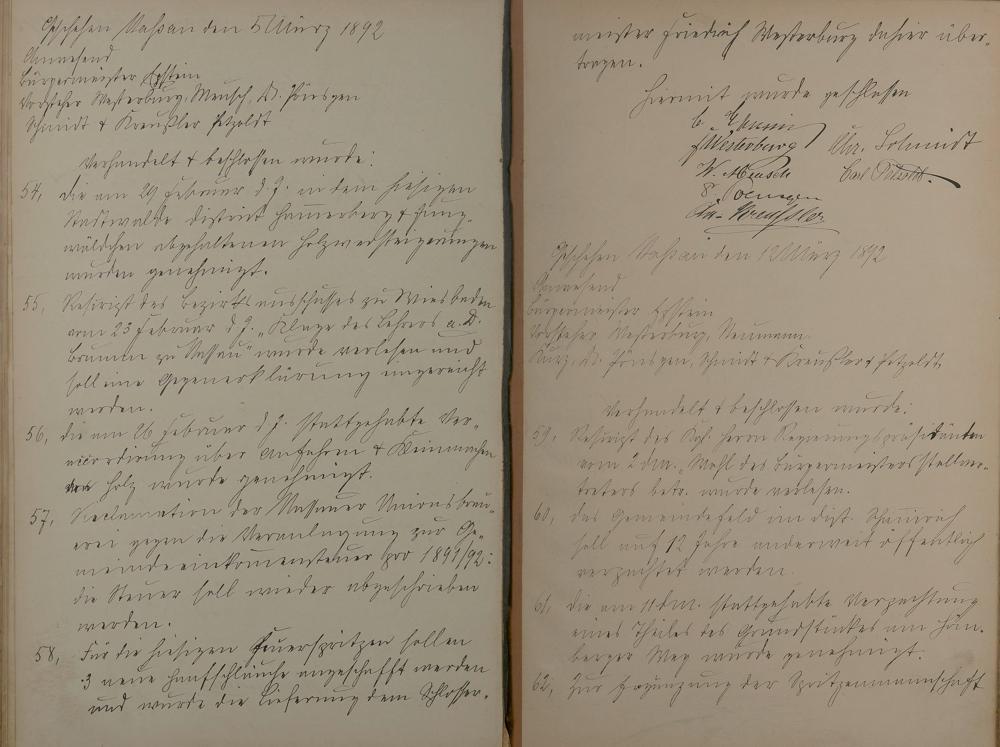 Geschehen Nassau den 5 März 1892
Anwesend
Bürgermeister Epstein
Vorsteher Westerburg, Mensch, D. Poensgen
Schmidt & Kreußler Petzoldt
Verhandelt & beschlossen wurde:
54, die am 29 Februar d. J. in dem hiesigen
Stadtwalde District Hannerberg & Jung-
wäldchen abgehaltenen Holzversteigerungen
wurden genehmigt.
55, Rescript des Bezirksausschusses zu Wiesbaden
vom 23 Februar d. J. „Klage des Lehrers a. D.
Brumm zu Nassau" wurde verlesen und
soll eine Gegenerklärung eingereicht
werden.
56, die am 26 Februar d J. stattgehabte Ver-
accordirung über Anfahren & Kleinmachen
von Holz wurde genehmigt.
57, Reclamation der Nassauer Unionsbrau-
erei gegen die Veranlagung zur Ge-
meindeeinkommensteuer pro 1891/92:
die Steuer soll wieder abgeschrieben
werden.
58, Für die hiesigen Feuerspritzen sollen
3 neue Hanfschläuche angeschafft werden
und wurde die Lieferung dem Schlosser-
meister Friedrich Westerburg dahier über-
tragen.
Hiermit wurde geschlossen
F Westerburg Chr. Schmidt
W. Mensch Carl Petzoldt.
Poensgen
Chr. Kreußler
Geschehen Nassau den 12 März 1892
Anwesend
Bürgermeister Epstein
Vorsteher Westerburg, Neumann
Kurz, D. Poensgen, Schmidt & Kreußler & Petzoldt
Verhandelt & beschlossen wurde:
59, Rescript des Kgl. Herrn Regierungspräsidenten
vom 2 d M. „Wahl des Bürgermeisters Stellver-
treters betr. wurde verlesen.
60, das Gemeindefeld im Distr.
soll auf 12 Jahre anderweit öffentlich
verpachtet werden.
61, die am 11 d M. stattgehabte Verpachtung
eines Theiles des Grundstückes am
berger Weg wurde genehmigt.
62, Zur Ergänzung der Spritzenmannschaft